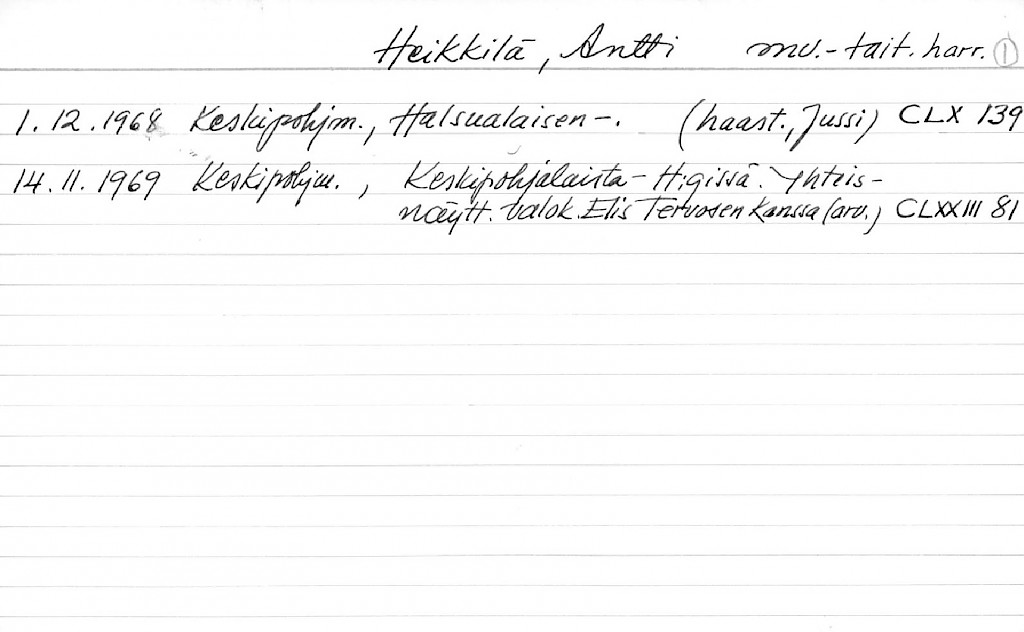 Heikkilä, Antti mv.-tait. harr. 1
1.12.1968 Keskipohjm., Halsualaisen -. (haast., Jussi) CLX 139
14.11.1969 Keskipohjm., Keskipohjalaista - H:gissä. Yhteis-
näytt. valok. Elis Tervosen kanssa (arv.) CLXXIII 81